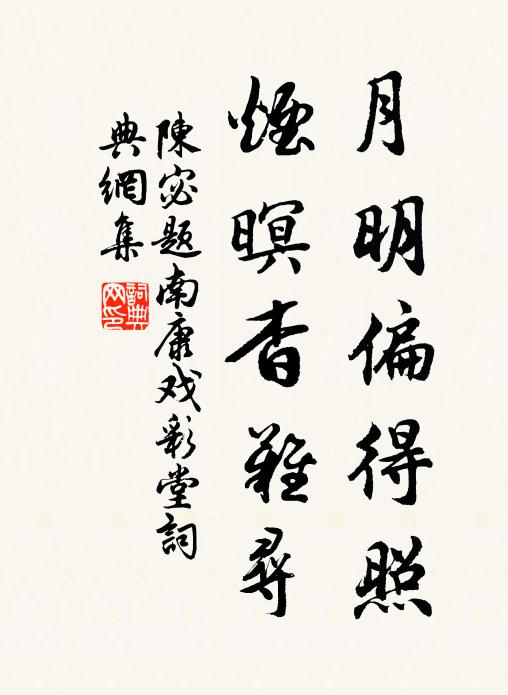 月明偏得照
煙暝杳難尋
陳宓题南康戏彩堂詞
典網集
詞典
网印